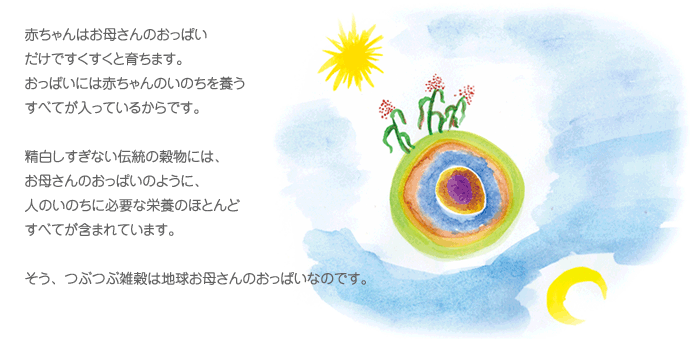 赤ちゃんはお母さんのおっぱい
だけですくすくと育ちます。
おっぱいには赤ちゃんのいのちを養う
すべてが入っているからです。
精白しすぎない伝統の穀物には、
お母さんのおっぱいのように、
人のいのちに必要な栄養のほとんど
すべてが含まれています。
そう、つぶつぶ雑穀は地球お母さんのおっぱいなのです。